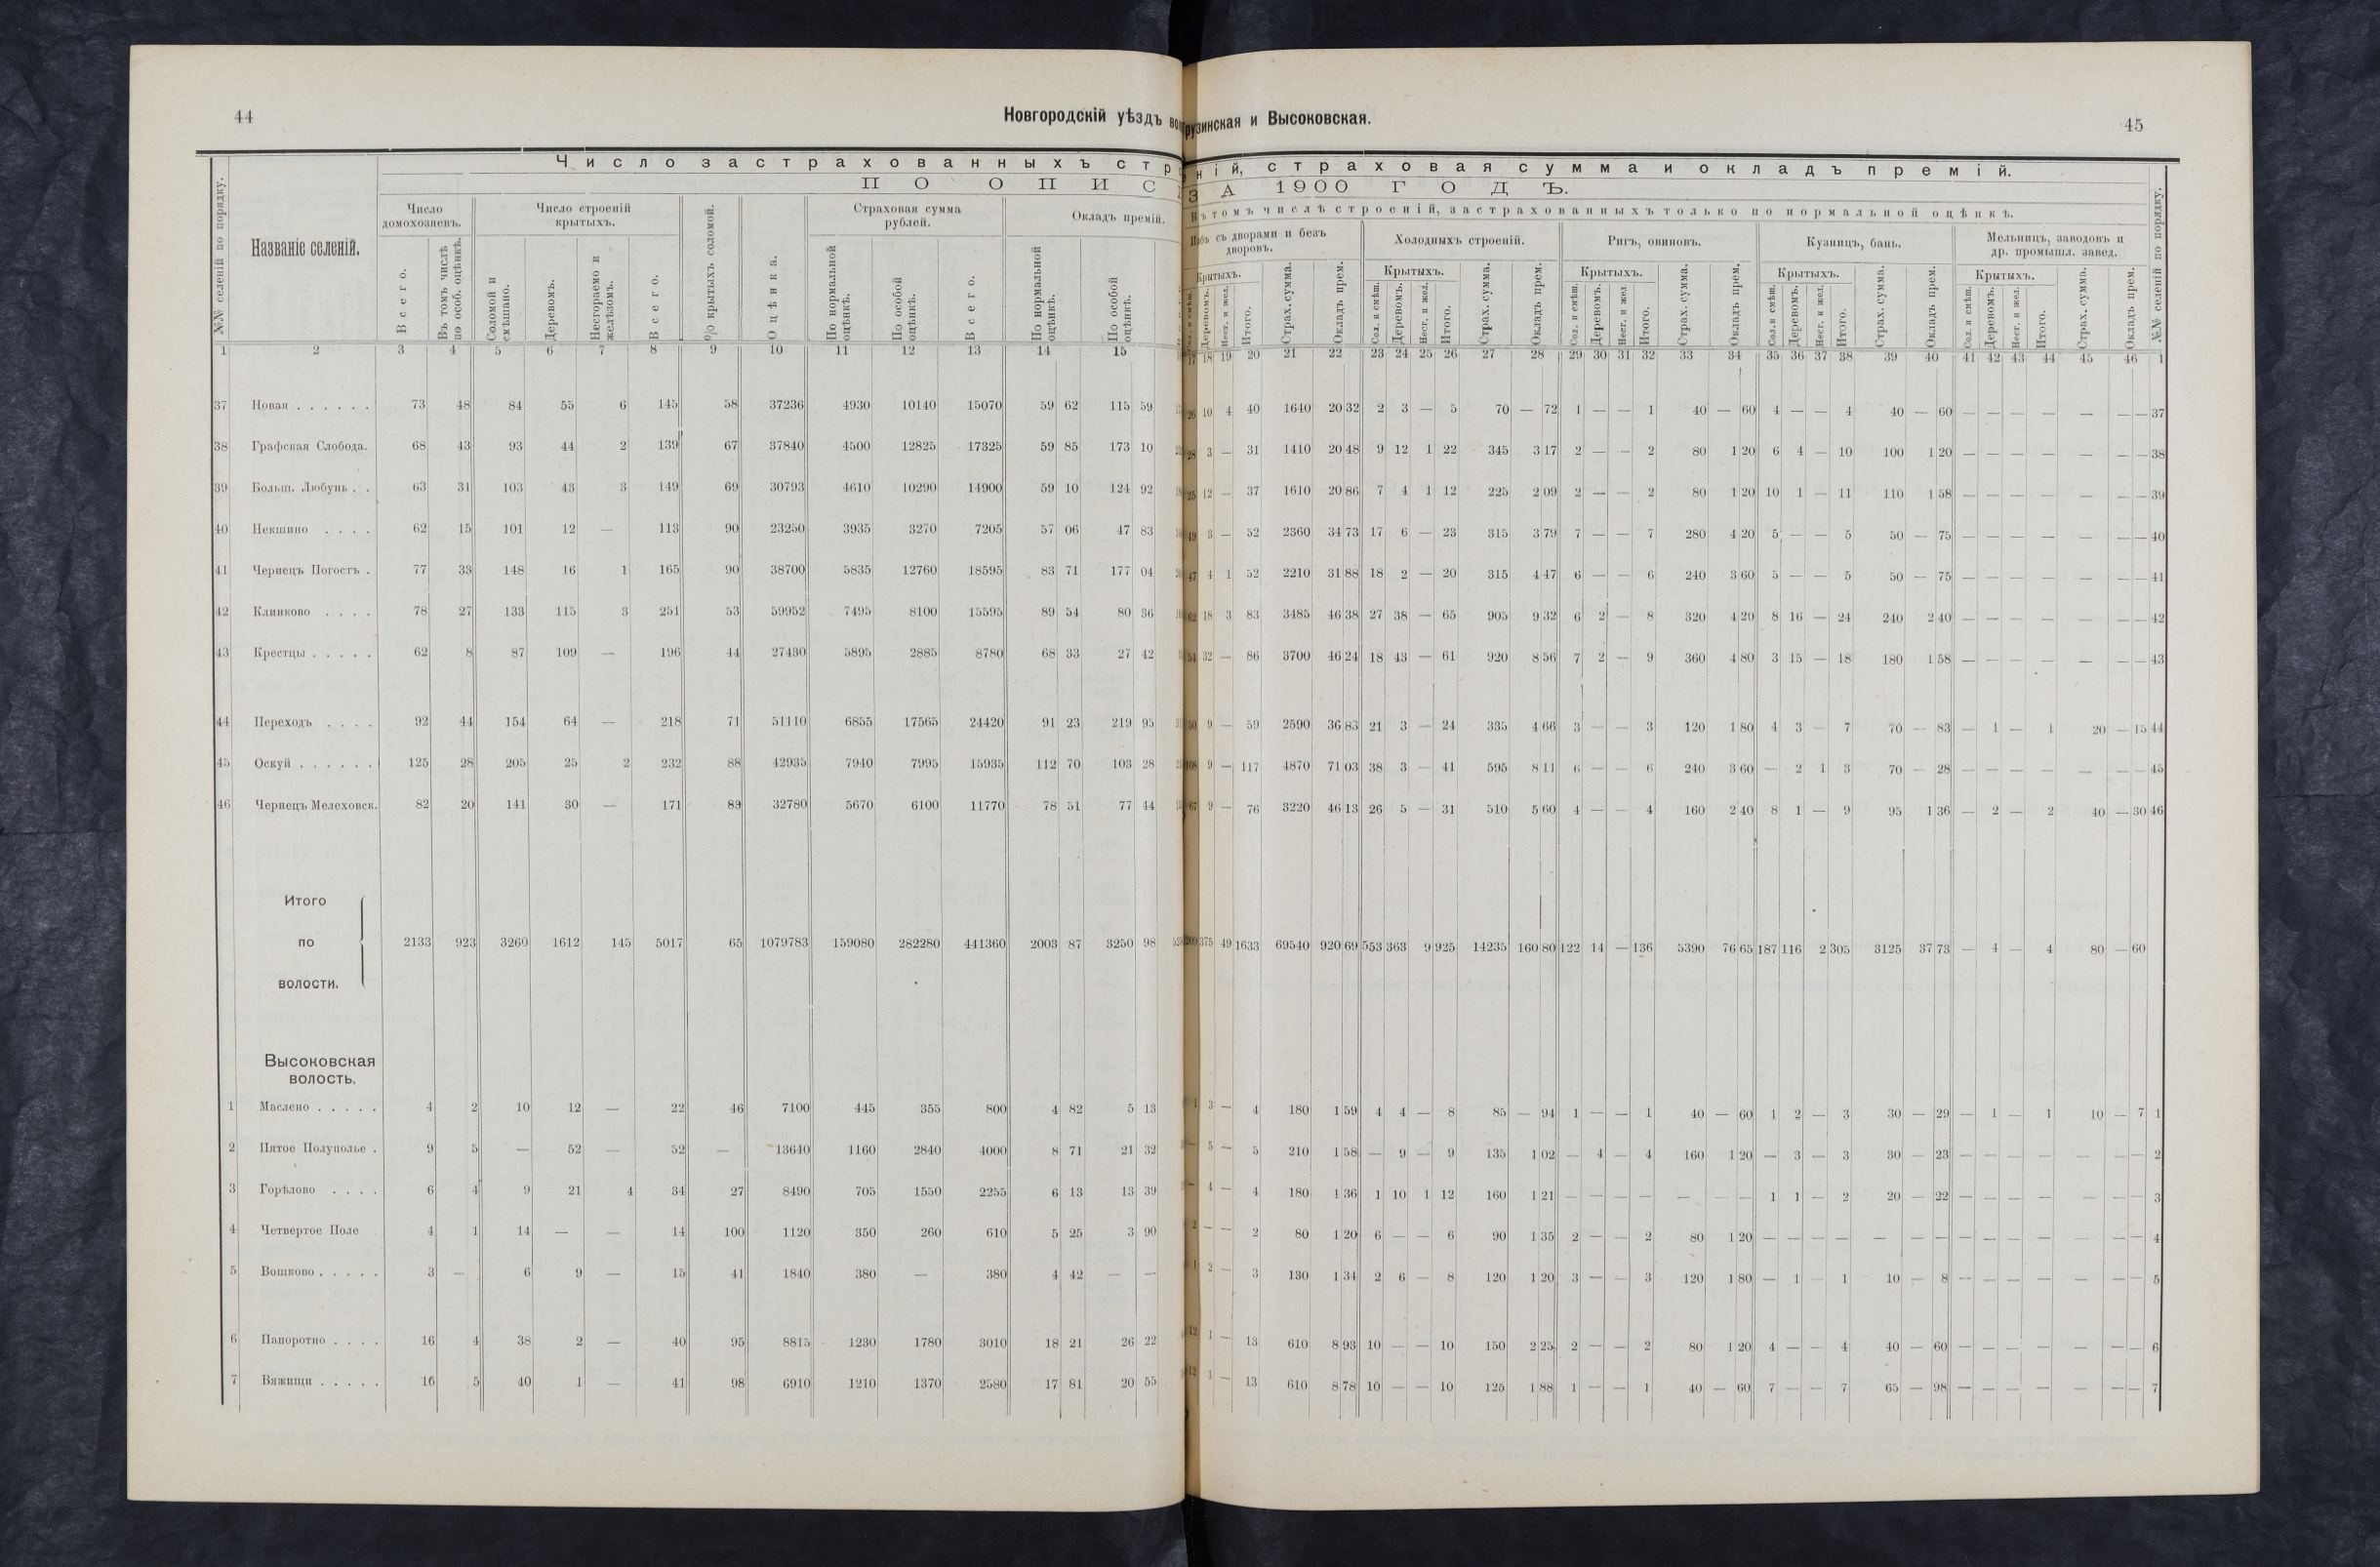 44
Новгородскій уѣздъ
Число застрахованныхъ
ПО ОПИС
№№ селеній по порядку.
Названіе селеній.
Число домохозяевъ.
Всего.
Въ томъ числѣ по особ. оцѣнкѣ.
Число строеній крытыхъ.
Соломой и смѣшано.
Деревомъ.
Несгораемо и желѣзомъ.
Всего.
% крытыхъ соломой.
Оцѣнка.
Страховая сумма рублей.
По нормальной оцѣнкѣ.
По особой оцѣнкѣ.
Всего.
Окладъ премій.
По нормальной оцѣнкѣ.
По особой оцѣнкѣ.
1 2 3 4 5 6 7 8 9 10 11 12 13 14 15
37 Новая . . . . . . 73 48 84 55 6 145 58 37236 4930 10140 15070 59 62 115 59
38 Графская Слобода. 68 43 93 44 2 139 67 37840 4500 12825 17325 59 85 173 10
39 Больш. Любунь . . 63 31 103 43 3 149 69 30793 4610 10290 14900 59 10 124 92
40 Некшино . . . . 62 15 101 12 — 113 90 23250 3935 3270 7205 57 06 47 83
41 Чернецъ Погостъ . 77 33 148 16 1 165 90 38700 5835 12760 18595 83 71 177 04
42 Клинково . . . . 78 27 133 115 3 251 53 59952 7495 8100 15595 89 54 80 36
43 Крестцы . . . . . 62 8 87 109 — 196 44 27430 5895 2885 8780 68 33 27 42
44 Переходъ . . . . 92 44 154 64 — 218 71 51110 6855 17565 24420 91 23 219 95
45 Оскуй . . . . . . 125 28 205 25 2 232 88 42935 7940 7995 15935 112 70 103 28
46 Чернецъ Мелеховск. 82 20 141 30 — 171 83 32780 5670 6100 11770 78 51 77 44
Итого
по 2133 923 3260 1612 145 5017 65 1079783 159080 282280 441360 2003 87 3250 98
волости.
Высоковская
волость.
1 Маслено . . . . . 4 2 10 12 — 22 46 7100 445 355 800 4 82 5 13
2 Пятое Полуполье . 9 5 — 52 — 52 — 13640 1160 2840 4000 8 71 21 32
3 Горѣлово . . . . 6 4 9 21 4 34 27 8490 705 1550 2255 6 13 13 39
4 Четвертое Поле 4 1 14 — — 14 100 1120 350 260 610 5 25 3 90
5 Вошково . . . . . 3 — 6 9 — 15 41 1840 380 — 380 4 42 — —
6 Папоротно . . . . 16 4 38 2 — 40 95 8815 1230 1780 3010 18 21 26 22
7 Вяжищи . . . . . 16 5 40 1 — 41 98 6910 1210 1370 2580 17 81 20 55
45
и Высоковская.
страховая сумма и окладъ премій.
ЗА 1900 ГОДЪ.
Въ томъ числѣ строеній, застрахованныхъ только по нормальной оцѣнкѣ.
Избъ съ дворами и безъ дворовъ.
Крытыхъ.
Деревомъ.
Несг. и жел.
Итого.
Страх. сумма.
Окладъ прем.
Холодныхъ строеній.
Крытыхъ.
Сол. и смѣш.
Деревомъ.
Несг. и жел.
Итого.
Страх. сумма.
Окладъ прем.
Ригъ, овиновъ.
Крытыхъ.
Сол. и смѣш.
Деревомъ.
Несг. и жел
Итого.
Страх. сумма.
Окладъ прем.
Кузницъ, бань.
Крытыхъ.
Сол. и смѣш.
Деревомъ.
Несг. и жел.
Итого.
Страх. сумма.
Окладъ прем.
Мельницъ, заводовъ и др. промышл. завед.
Крытыхъ.
Сол. и смѣш.
Деревомъ.
Несг. и жел.
Итого.
Страх. сумма.
Окладъ прем.
№№ селеній по порядку.
17 18 19 20 21 22 23 24 25 26 27 28 29 30 31 32 33 34 35 36 37 38 39 40 41 42 43 44 45 46 1
26 10 4 40 1640 20 32 2 3 — 5 70 — 72 1 — — 1 40 — 60 4 — — 4 40 — 60 — — — — — — — 37
28 3 — 31 1410 20 48 9 12 1 22 345 3 17 2 — — 2 80 1 20 6 4 — 10 100 1 20 — — — — — — — 38
25 12 — 37 1610 20 86 7 4 1 12 225 2 09 2 — — 2 80 1 20 10 1 — 11 110 1 58 — — — — — — — 39
49 3 — 52 2360 34 73 17 6 — 23 315 3 79 7 — — 7 280 4 20 5 — — 5 50 — 75 — — — — — — — 40
47 4 1 52 2210 31 88 18 2 — 20 315 4 47 6 — — 6 240 3 60 5 — — 5 50 — 75 — — — — — — — 41
62 18 3 83 3485 46 38 27 38 — 65 905 9 32 6 2 — 8 320 4 20 8 16 — 24 240 2 40 — — — — — — — 42
54 32 — 86 3700 46 24 18 43 — 61 920 8 56 7 2 — 9 360 4 80 3 15 — 18 180 1 58 — — — — — — — 43
50 9 — 59 2590 36 83 21 3 — 24 335 4 66 3 — — 3 120 1 80 4 3 — 7 70 — 83 — 1 — 1 20 — 15 44
108 9 — 117 4870 71 03 38 3 — 41 595 8 11 6 — — 6 240 3 60 — 2 1 3 70 — 28 — — — — — — — 45
67 9 — 76 3220 46 13 26 5 — 31 510 5 60 4 — — 4 160 2 40 8 1 — 9 95 1 36 — 2 — 2 40 — 30 46
375 49 1633 69540 920 69 553 363 9 925 14235 160 80 122 14 — 136 5390 76 65 187 116 2 305 3125 37 73 — 4 — 4 80 — 60
1 3 — 4 180 1 59 4 4 — 8 85 — 94 1 — — 1 40 — 60 1 2 — 3 30 — 29 — 1 — 1 10 — 7 1
— 5 — 5 210 1 58 — 9 — 9 135 1 02 — 4 — 4 160 1 20 — 3 — 3 30 — 23 — — — — — — — 2
— 4 — 4 180 1 36 1 10 1 12 160 1 21 — — — — — — — 1 1 — 2 20 — 22 — — — — — — — 3
2 — — 2 80 1 20 6 — — 6 90 1 35 2 — — 2 80 1 20 — — — — — — — — — — — — — — 4
1 2 — 3 130 1 34 2 6 — 8 120 1 20 3 — — 3 120 1 80 — 1 — 1 10 — 8 — — — — — — — 5
12 1 — 13 610 8 93 10 — — 10 150 2 25 2 — — 2 80 1 20 4 — — 4 40 — 60 — — — — — — — 6
12 1 — 13 610 8 78 10 — — 10 125 1 88 1 — — 1 40 — 60 7 — — 7 65 — 98 — — — — — — — 7